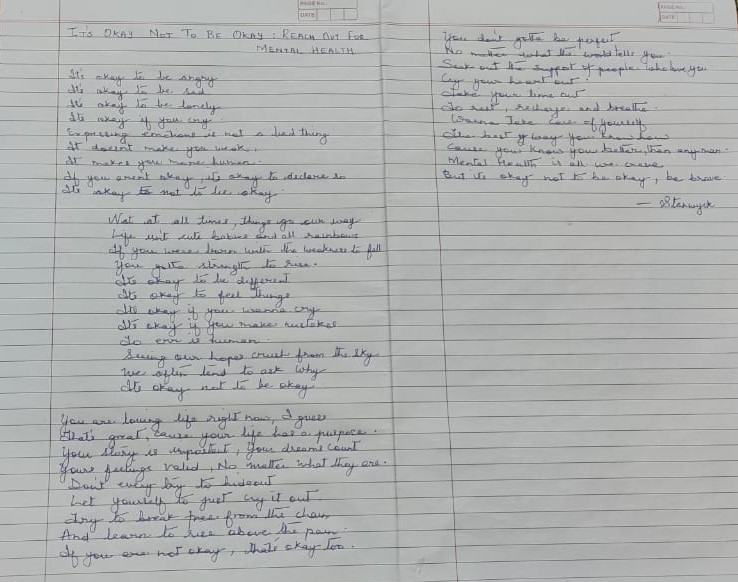 PAGE No.
DATE
PAGE No.
DATE
IT'S OKAY NOT TO BE OKAY : REACH OUT FOR
MENTAL HEALTH
It's okay to be angry
It's okay to be sad
It's okay to be lonely
Its okay if you cry
Expressing emotions is not a bad thing
It doesn't make you weak.
It makes you more human.
If you arent okay, its okay to declare so
Its okay to not to be okay.
Not at all times, things go our way
Life isn't cute babies and all rainbows
If you were born with the weakness to fall
You gotta strength to rise.
Its okay to be different
Its okay to feel things
Its okay if you wanna cry
Its okay if you make mistakes
To err is human.
Seeing our hopes crush from the sky
We often tend to ask why
Its okay not to be okay
You are loving life right now, I guess
That's great, cause your life has a purpose.
Your story is important, Your dreams count
Youre feelings valid, No matter what they are.
Don't every to hideout
Let yourself to just cry it out.
Try to break free from the chain
And learn to rise above the pain.
If you are not okay, thats okay too.
You don't gotta be perfect
No matter what the world tells you.
Seek out the support of people who love you
Cry your heart out.
Take your time out
To rest, recharge and breathe.
Wanna Take care of yourself
The best way you know how
Cause you know you better, than any man.
Mental Health is all we crave
But its okay not to be okay, be brave